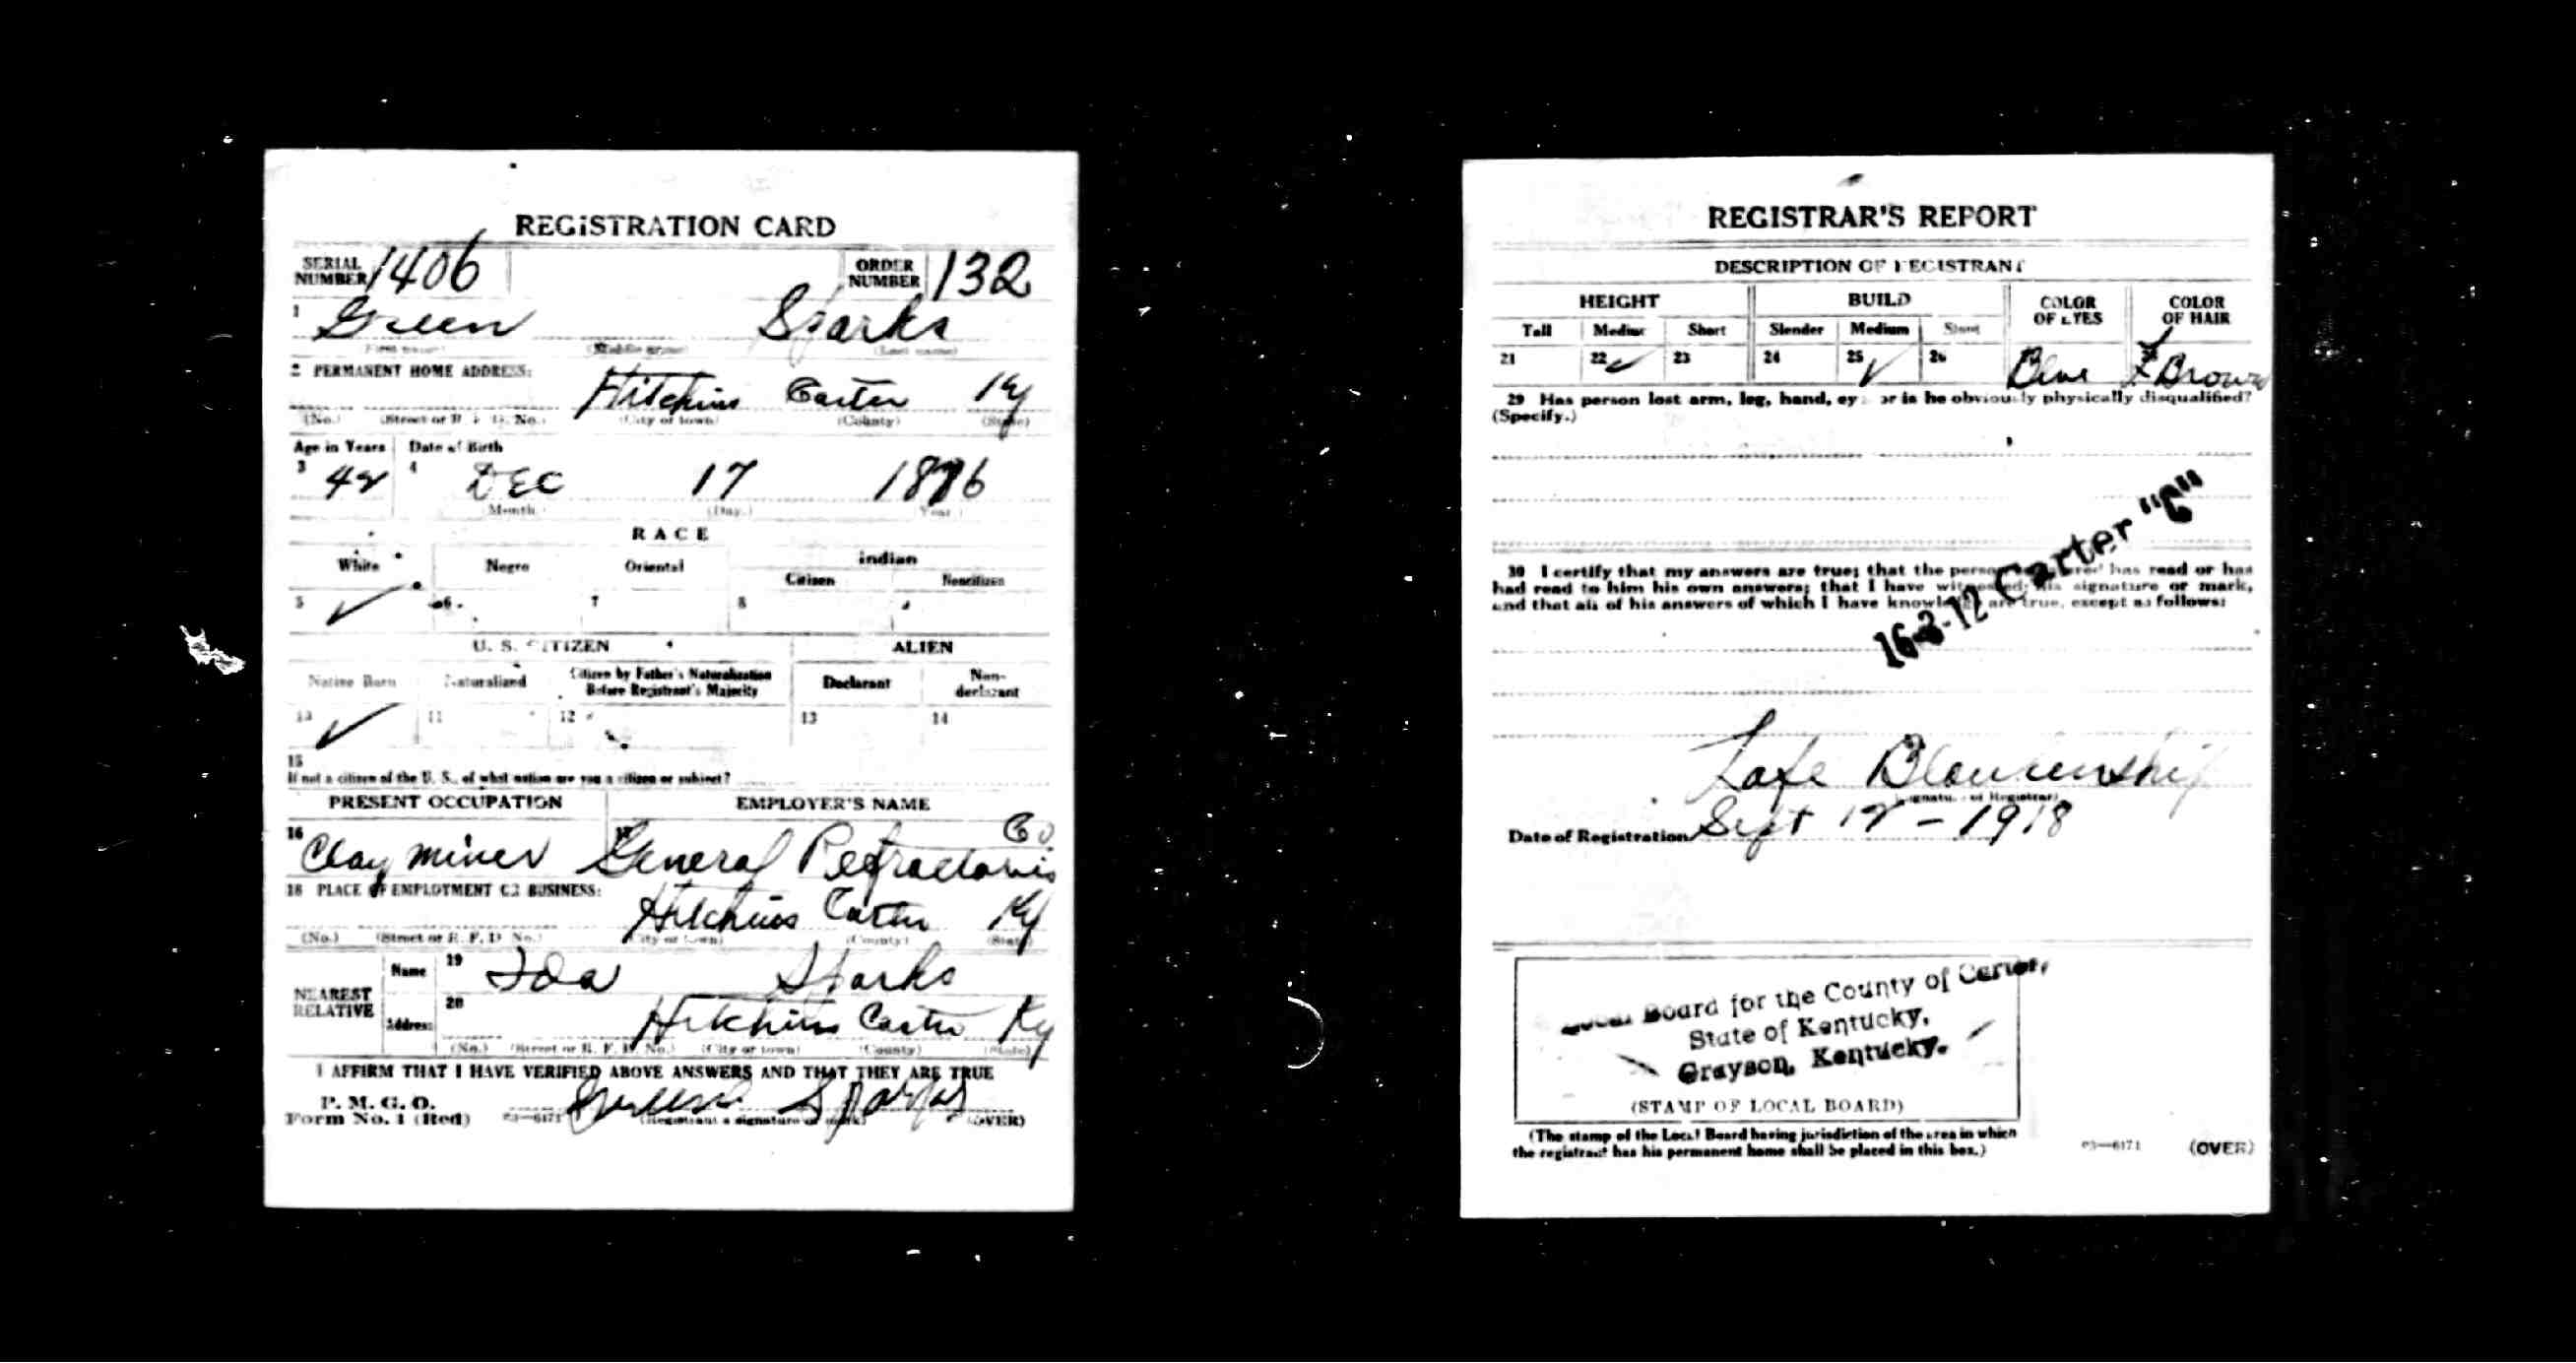 REGISTRATION CARD
SERIAL NUMBER 1406 ORDER NUMBER 132
1 Green Sparks
(First name) (Middle name) (Last name)
2 PERMANENT HOME ADDRESS: Hitchins Carter Ky
(No.) (Street or R. F. D. No.) (City or town) (County) (State)
Age in Years Date of Birth
3 42 4 DEC 17 1876
(Month.) (Day.) (Year.)
RACE
White Negro Oriental Indian
Citizen Noncitizen
5 ✓ 6 7 8
U. S. CITIZEN ALIEN
Native Born Naturalized Citizen by Father's Naturalization Before Registrant's Majority Declarant Non-declarant
10 ✓ 11 12 13 14
15
If not a citizen of the U. S., of what nation are you a citizen or subject?
PRESENT OCCUPATION EMPLOYER'S NAME
16 Clay miner 17 General Refractories Co
18 PLACE OF EMPLOYMENT OR BUSINESS:
Hitchins Carter Ky
(No.) (Street or R. F. D. No.) (City or town) (County) (State)
NEAREST RELATIVE Name 19 Ida Sparks
Address 20 Hitchins Carter Ky
(No.) (Street or R. F. D. No.) (City or town) (County) (State)
I AFFIRM THAT I HAVE VERIFIED ABOVE ANSWERS AND THAT THEY ARE TRUE
P. M. G. O.
Form No. 1 (Red) 03—6171 Green Sparks
(Registrant's signature or mark) (OVER)
REGISTRAR'S REPORT
DESCRIPTION OF REGISTRANT
HEIGHT BUILD COLOR OF EYES COLOR OF HAIR
Tall Medium Short Slender Medium Stout
21 22 ✓ 23 24 25 ✓ 26 Blue Brown
29 Has person lost arm, leg, hand, eye, or is he obviously physically disqualified?
(Specify.)
16-3-12 Carter "C"
30 I certify that my answers are true; that the person registered has read or has
had read to him his own answers; that I have witnessed his signature or mark,
and that all of his answers of which I have knowledge are true, except as follows:
Lafe Blankenship
(Signature of Registrar)
Date of Registration Sept 12 - 1918
Local Board for the County of Carter,
State of Kentucky,
Grayson, Kentucky.
(STAMP OF LOCAL BOARD)
(The stamp of the Local Board having jurisdiction of the area in which
the registrant has his permanent home shall be placed in this box.)
03—6171 (OVER)